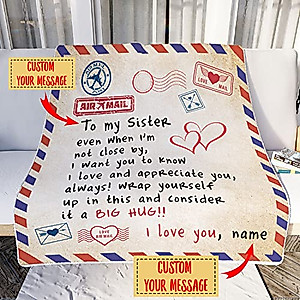 CUSTOM
YOUR MESSAGE
LOVE
MAIL
AIR MAIL
To my Sister
even when I'm
not close by,
I want you to know
I love and appreciate you,
always! Wrap yourself
up in this and consider
it a BIG HUG!!
I love you, name
LOVE
CUSTOM
YOUR MESSAGE